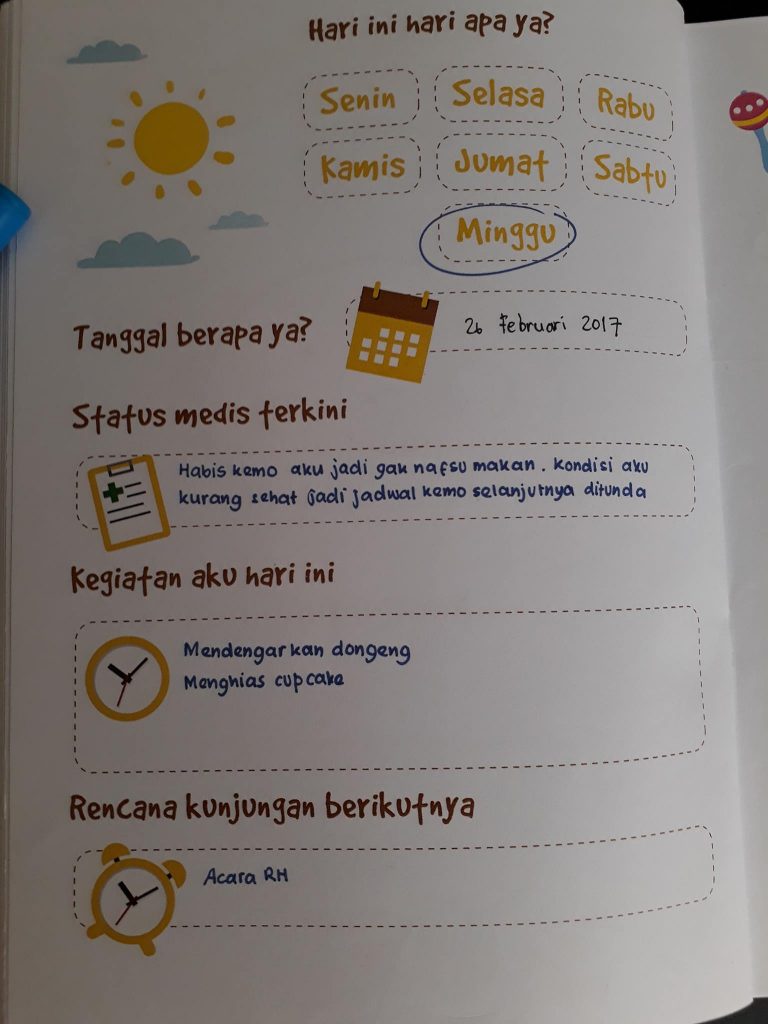 Hari ini hari apa ya?
Senin Selasa Rabu
Kamis Jumat Sabtu
Minggu
Tanggal berapa ya?
26 Februari 2017
Status medis terkini
Habis kemo aku jadi gak nafsu makan. Kondisi aku
kurang sehat jadi jadwal kemo selanjutnya ditunda
Kegiatan aku hari ini
Mendengarkan dongeng
Menghias cupcake
Rencana kunjungan berikutnya
Acara RH